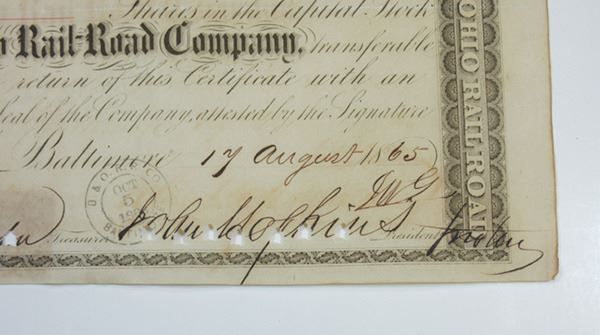 Shares in the Capital Stock
Rail-Road Company, transferable
return of this Certificate with an
Seal of the Company, attested by the Signature
Baltimore 17 August 1865
B & O. R. R. CO.
OCT
5
Treasurer
Johns Hopkins
President
OHIO RAIL ROAD